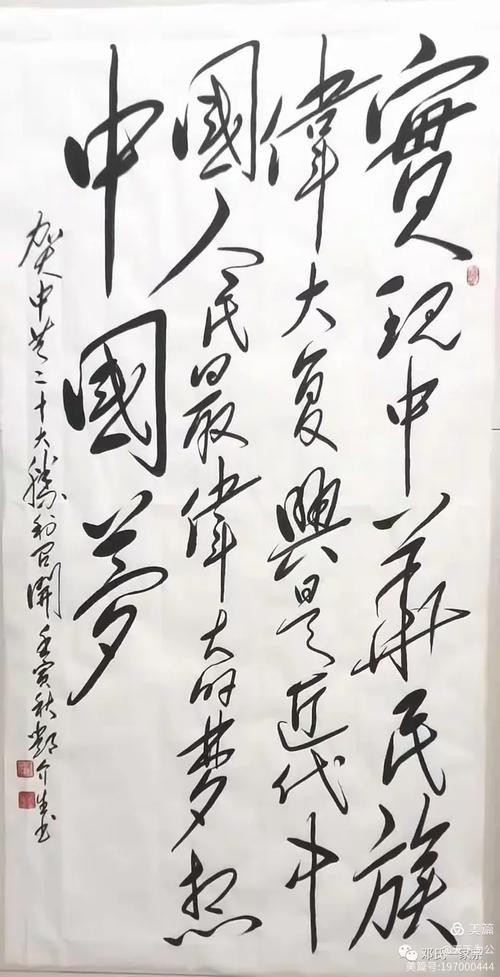 實現中華民族
偉大复興是近代中
國人民最偉大的梦想
中國夢
贺中共二十大勝利召開 壬寅秋 鄧介生书
美篇
邓氏一家亲
美篇号:197000444